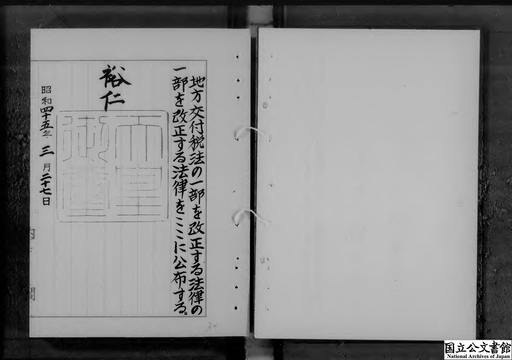 地方交付税法の一部を改正する法律の
一部を改正する法律をここに公布する。
裕仁
天皇御璽
昭和四十五年三月二十七日
国立公文書館
National Archives of Japan